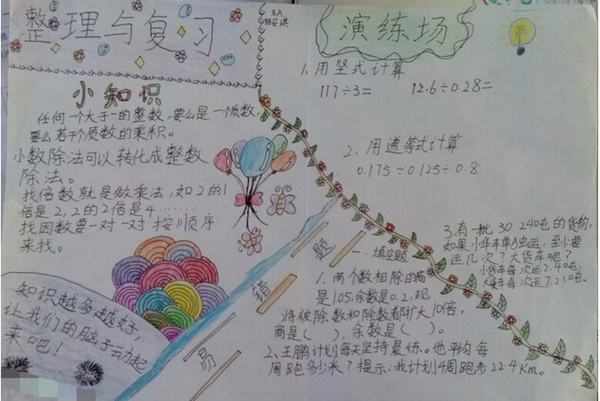 整理与复习
小知识
任何一个大于一的整数,要么是一个质数,
要么若干个质数的乘积。
小数除法可以转化成整数
除法。
找倍数就是做乘法,如2的1
倍是2,2的2倍是4……
找因数要一对一对按顺序
来找。
知识越多越好,
让我们的脑子动起
来吧!
演练场
1.用竖式计算
117÷3= 12.6÷0.28=
2.用递等式计算
0.175÷0.125÷0.8
3.有一批30 240包的货物,
如果小车单独运,至少要
运几次?大货车呢?
小货车每次运240包
每次运720包。
易错题
一、填空题
1.两个数相除的商
是105,余数是0.2,现
将被除数和除数都扩大10倍,
商是( )余数是( )。
2.王鹏计划每天坚持晨练。他平均每
周跑多少米?提示:我计划4周跑步22.4Km。